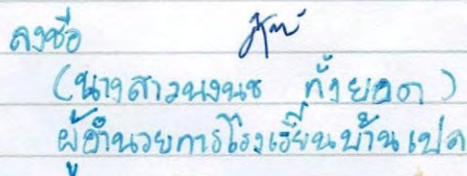 ลงชื่อ
(นางสาวนงนุช ทั้งยอด)
ผู้อำนวยการโรงเรียนบ้านเปล